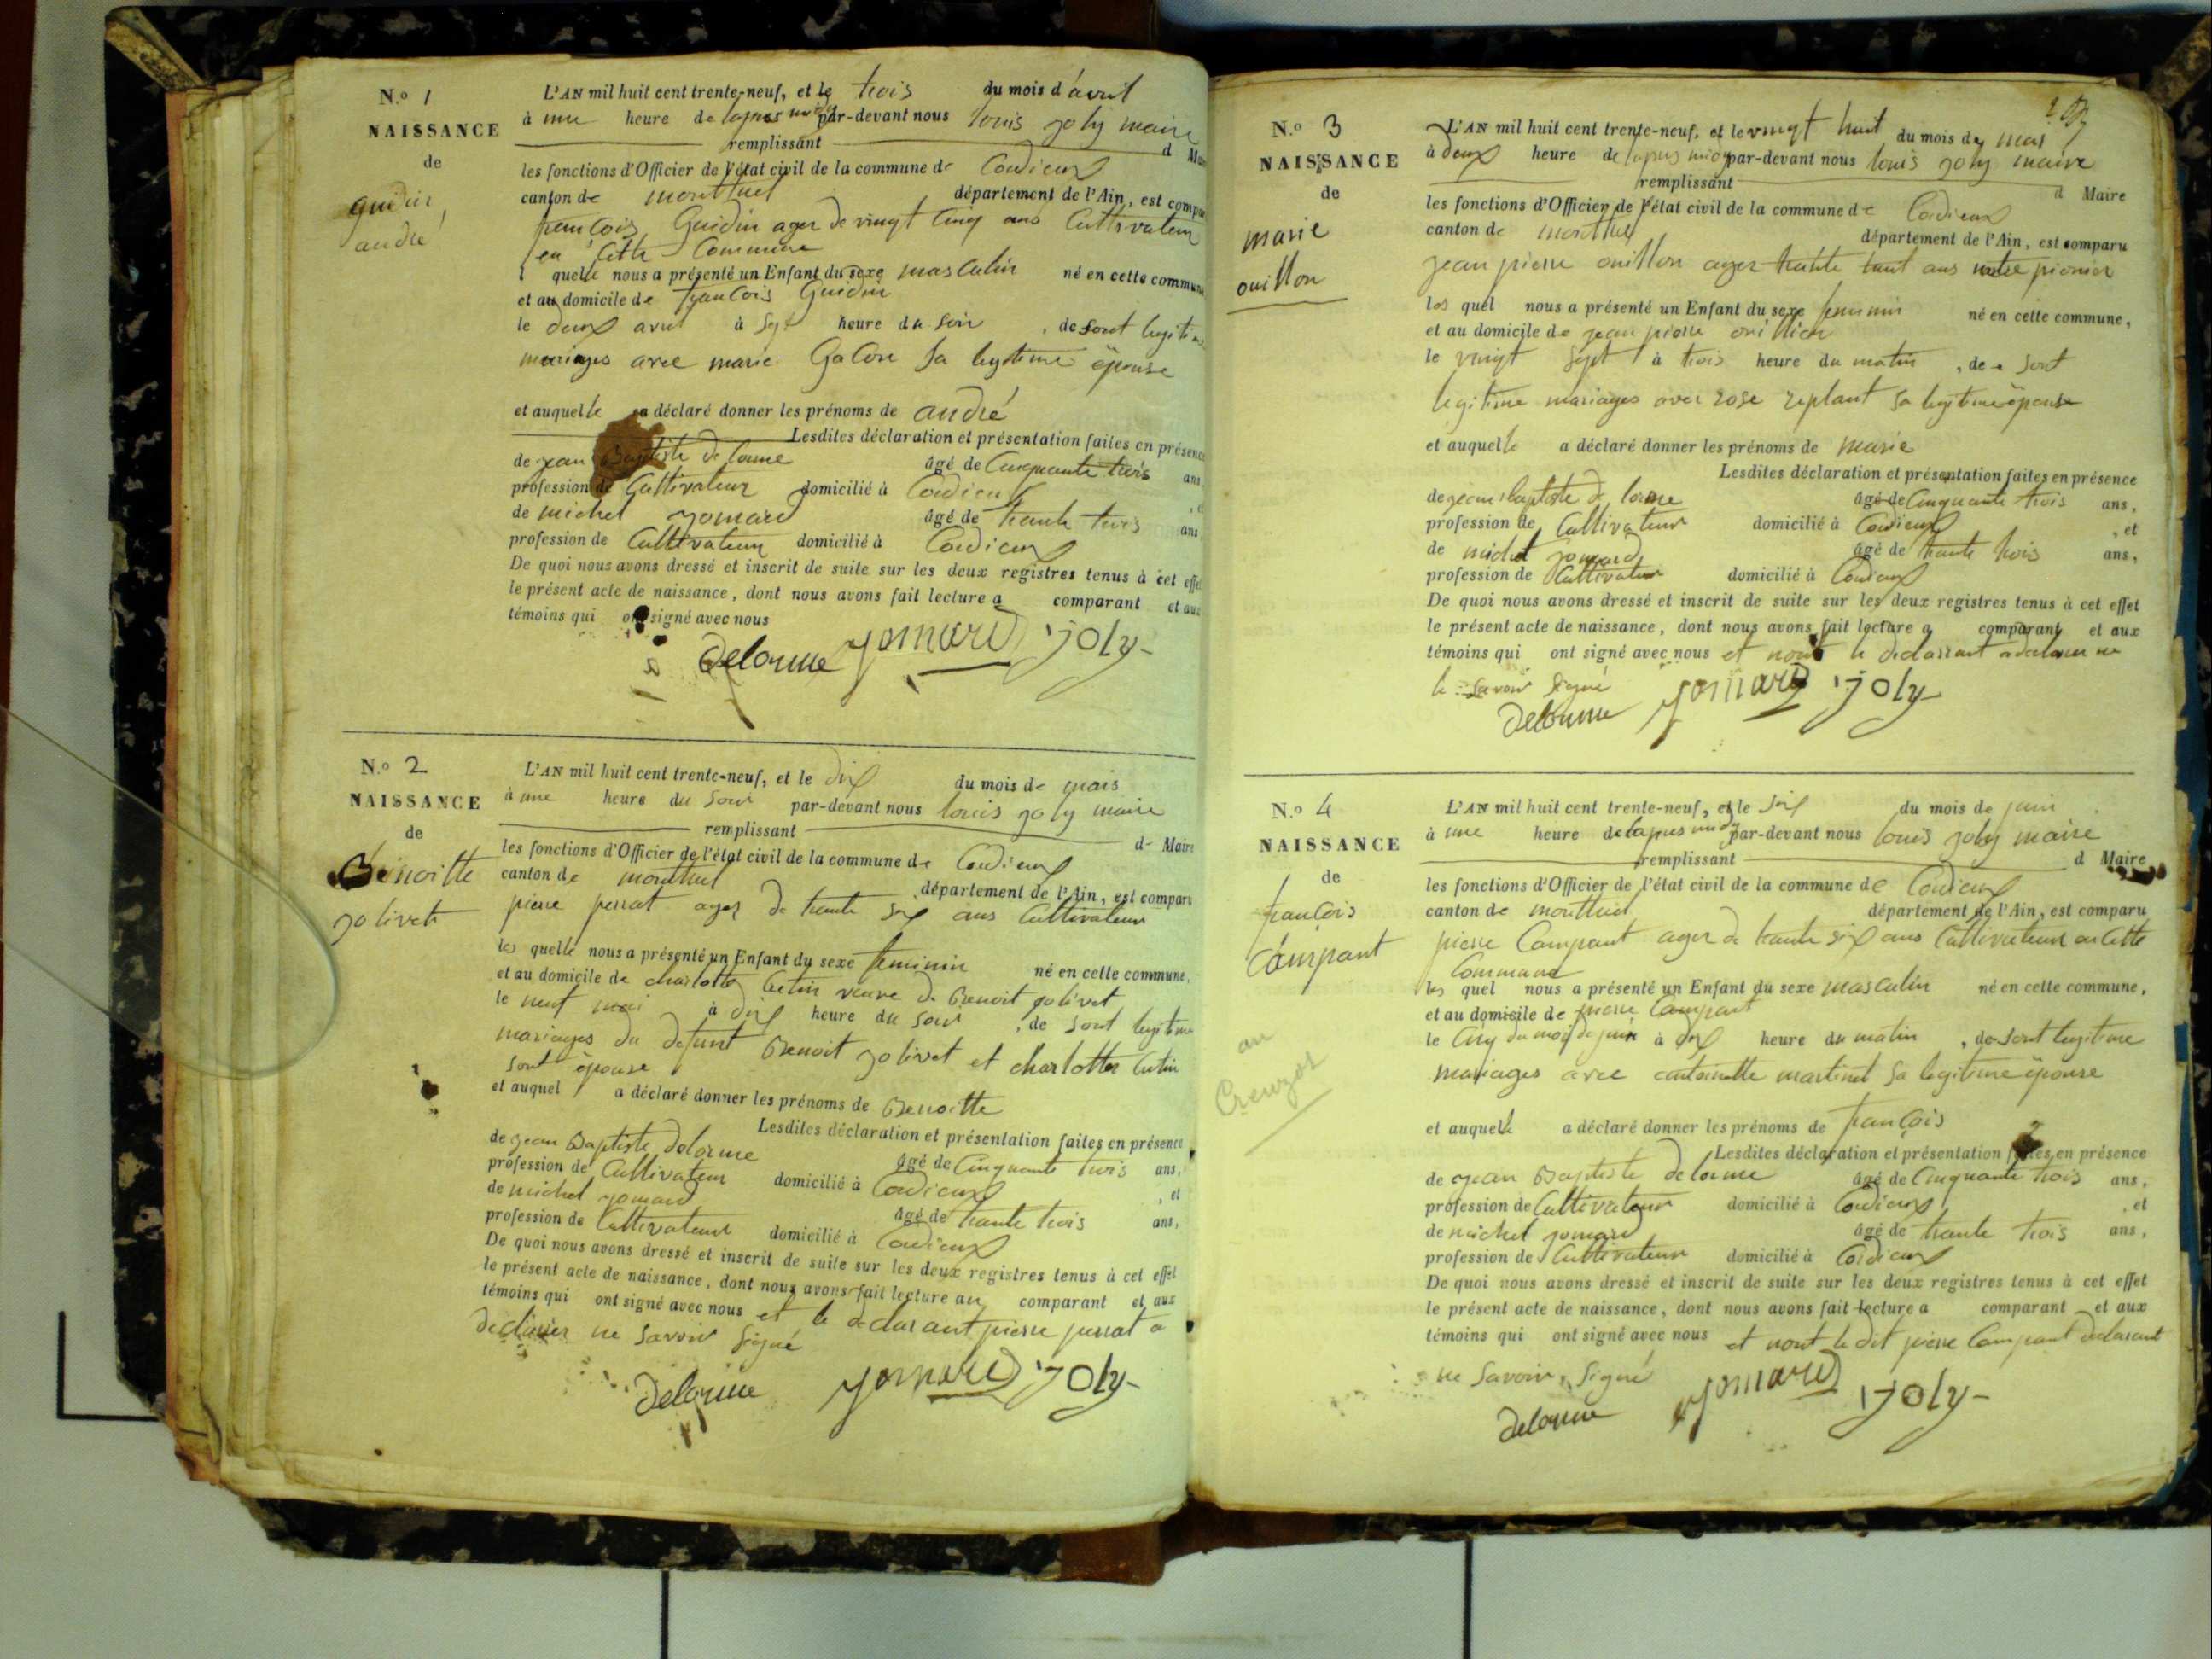 N.o 1
NAISSANCE
de
guidin
andré
L'AN mil huit cent trente-neuf, et le trois du mois d'avril
à une heure de lapres midy par-devant nous louis joly maire
remplissant d Mair
les fonctions d'Officier de l'état civil de la commune de Cordieux
canton de montluel département de l'Ain, est compa
francois Guidin ager de vingt Cinq ans Cultivateur
en Cette Commune
quelle nous a présenté un Enfant du sexe masculin né en cette commune
et au domicile de francois Guidin
le deux avril à sept heure du soir, de sont legitim
mariages avec marie Galon sa legitime épouse
et auquelle a déclaré donner les prénoms de andré
Lesdites déclaration et présentation faites en présence
de jean Baptiste de lorme âgé de Cinquante trois ans
profession de Cultivateur domicilié à Cordieux
de michel jomard âgé de trante trois ans
profession de Cultivateur domicilié à Cordieux
De quoi nous avons dressé et inscrit de suite sur les deux registres tenus à cet effet
le présent acte de naissance, dont nous avons fait lecture a comparant et aux
témoins qui ont signé avec nous
Delorme jomard joly
N.o 2
NAISSANCE
de
Benoitte
jolivet
L'AN mil huit cent trente-neuf, et le dix du mois de mais
à une heure du soir par-devant nous louis joly maire
remplissant d- Maire
les fonctions d'Officier de l'état civil de la commune de Cordieux
canton de montluel département de l'Ain, est comparu
pierre perrat ager de trante six ans Cultivateur
les quelle nous a présenté un Enfant du sexe feminin né en cette commune,
et au domicile de charlotte Cutin veuve de Benoit jolivet
le neuf mai à dix heure du soir, de sont legitime
mariages du defunt Benoit jolivet et charlotte Cutin
sont épouse
et auquel a déclaré donner les prénoms de Benoitte
Lesdites déclaration et présentation faites en présence
de jean Baptiste delorme âgé de Cinquante trois ans,
profession de Cultivateur domicilié à Cordieux, et
de michel jomard âgé de trante trois ans,
profession de Cultivateur domicilié à Cordieux
De quoi nous avons dressé et inscrit de suite sur les deux registres tenus à cet effet
le présent acte de naissance, dont nous avons fait lecture au comparant et aux
témoins qui ont signé avec nous et le declarant pierre perrat a
declarer ne savoir signé
Delorme jomard joly
N.o 3
NAISSANCE
de
marie
ouillon
L'AN mil huit cent trente-neuf, et le vingt huit du mois de mai
à deux heure de lapres midy par-devant nous louis joly maire
remplissant d Maire
les fonctions d'Officier de l'état civil de la commune de Cordieux
canton de montluel département de l'Ain, est comparu
jean pierre ouillon ager trante huit ans
les quel nous a présenté un Enfant du sexe feminin né en cette commune,
et au domicile de jean pierre ouillion
le vingt sept à trois heure du matin, de sont
legitime mariages avec rose replant sa legitime épouse
et auquelle a déclaré donner les prénoms de marie
Lesdites déclaration et présentation faites en présence
de jean baptiste de lorme âgé de Cinquante trois ans,
profession de Cultivateur domicilié à Cordieux, et
de michel jomard âgé de trante trois ans,
profession de Cultivateur domicilié à Cordieux
De quoi nous avons dressé et inscrit de suite sur les deux registres tenus à cet effet
le présent acte de naissance, dont nous avons fait lecture a comparant et aux
témoins qui ont signé avec nous et nont le declarant a declarer ne
le savoir signé
Delorme jomard joly
N.o 4
NAISSANCE
de
francois
Campant
au
Creuzot
L'AN mil huit cent trente-neuf, et le six du mois de juin
à une heure de lapres midy par-devant nous louis joly maire
remplissant d Maire
les fonctions d'Officier de l'état civil de la commune de Cordieux
canton de montluel département de l'Ain, est comparu
pierre Campant ager de trante six ans Cultivateur en Cette
Commune
les quel nous a présenté un Enfant du sexe masculin né en cette commune,
et au domicile de pierre Campant
le Cinq du mois de juin à dix heure du matin, de sont legitime
mariages avec antoinette martinet sa legitime épouse
et auquelle a déclaré donner les prénoms de françois
Lesdites déclaration et présentation faites en présence
de jean Baptiste delorme âgé de Cinquante trois ans,
profession de Cultivateur domicilié à Cordieux, et
de michel jomard âgé de trante trois ans,
profession de Cultivateur domicilié à Cordieux
De quoi nous avons dressé et inscrit de suite sur les deux registres tenus à cet effet
le présent acte de naissance, dont nous avons fait lecture a comparant et aux
témoins qui ont signé avec nous et nont le dit pierre Campant declarant
ne savoir signé
Delorme jomard joly